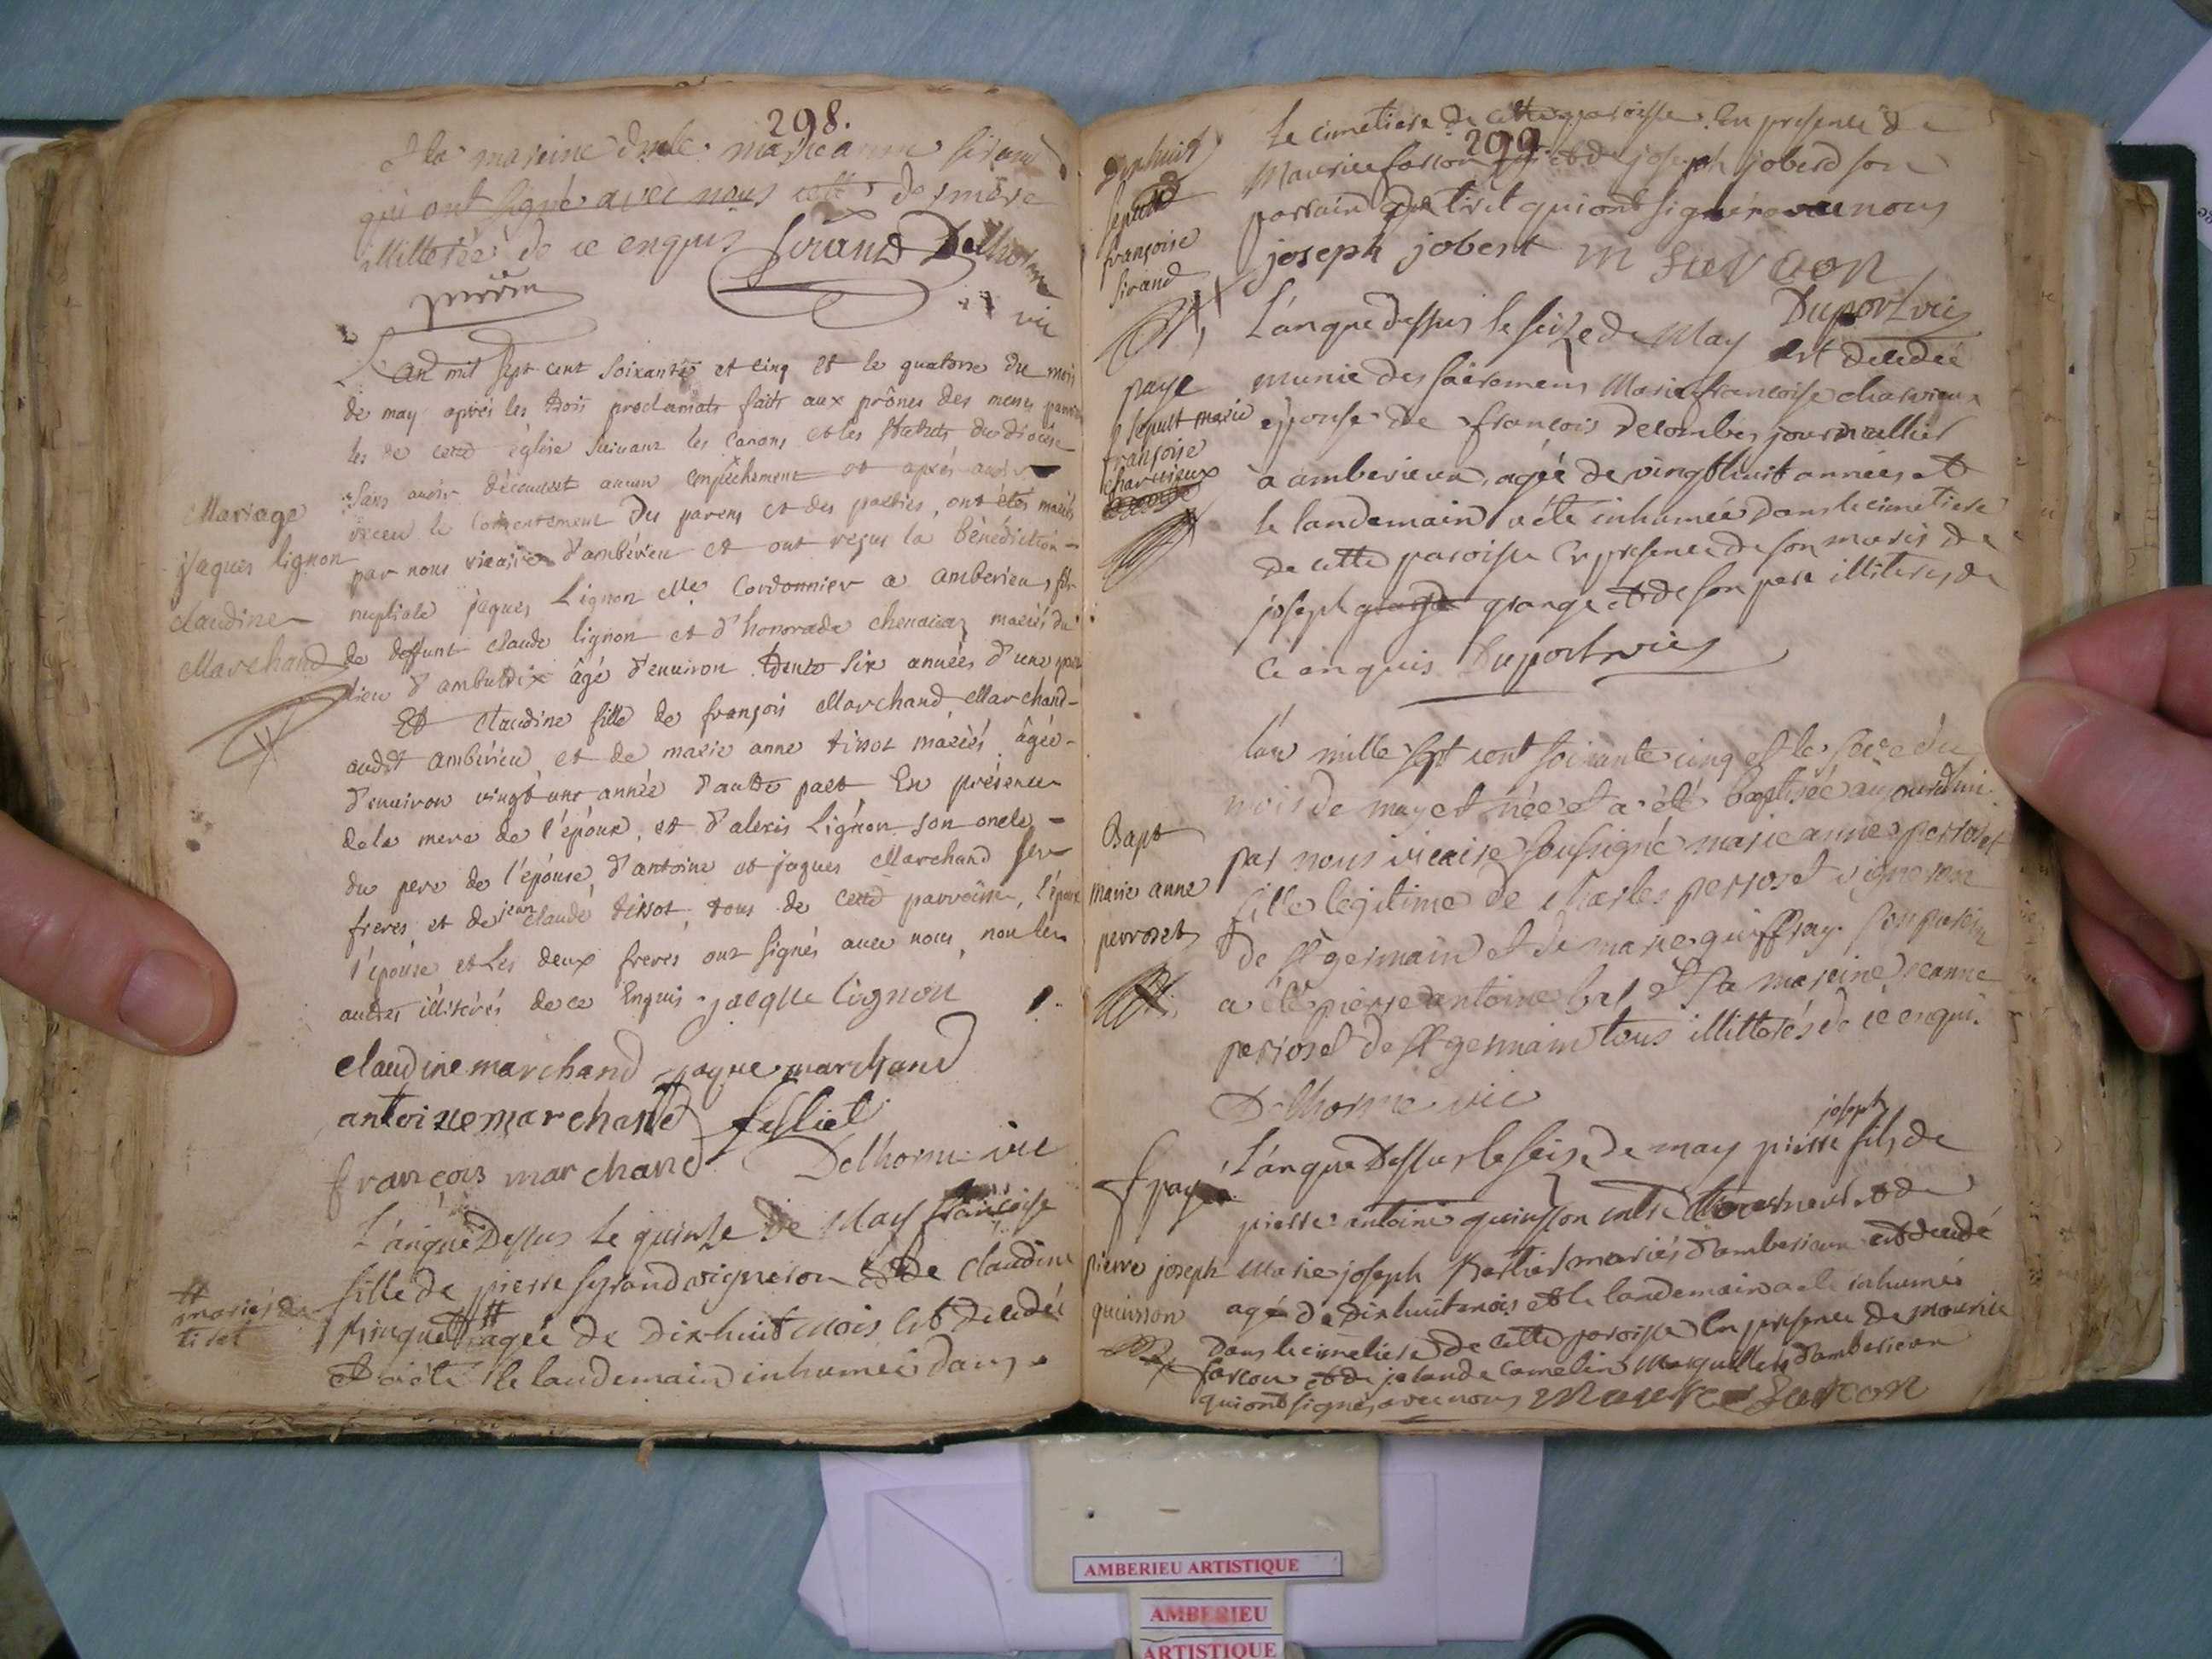 298.
& la mareine dmlle marie anne sirand
qui ont signé avec nous de
illitterée de ce enquis Sirand Delhorme
perrin vic
L'an mil sept cent soixante et cinq et le quatorse du mois
de may après les trois proclamats faits aux prônes des messes
les de cette église suivant les canons et les statuts du diocèse
sans avoir découvert aucun empêchement et après avoir
receu le consentement des parens et des parties, ont étés mariés
par nous vicaire d'ambérieu et ont reçus la bénédiction
nuptiale jaques Lignon Me Cordonnier a amberieu, fils
de deffunt claude lignon et d'honorade mariés du
lieu d' âgé d'environ trente six années d'une part
Et claudine fille de françois Marchand Marchand
audt ambérieu et de marie anne tissot mariés âgée
d'environ vingt une année d'autre part En présence
de la mere de l'époux, et d'alexis Lignon son oncle
du pere de l'épouse d'antoine et jaques Marchand ses
freres et de jean claude tissot tous de cette parroisse, l'époux
l'épouse et les deux freres ont signés avec nous, non les
autres illiterés de ce Enquis jacque lignon
claudine marchand jaque marchand
antoine marchand
françois marchand Delhorme vic
L'an que Dessus le quinze de May françoise
fille de pierre syrand vigneron & de claudine
agée de dix-huit mois est decedée
& a été le landemain inhumée dans
Mariage
jaques lignon
claudine
Marchand
mariés de
tiret
299
Le cimetiere de cette paroisse. En presence de
Maurice farcon et de joseph joberd son
parrain de tiret qui ont signé avec nous
joseph jobert m farcon
Duport vic
L'an que dessus le seize de May est decedée
munie des sacremens Marie françoise charvieux
epouse de françois decombes journallier
a amberieux, agée de vingt huit années et
le landemain a été inhumée dans le cimetiere
de cette paroisse En presence de son maris de
joseph grange et de son pere illiterés de
ce enquis Duport vic
l'an mille sept cent soixante cinq et le seize du
mois de may est née et a été baptisée aujourd'hui
par nous vicaire soussigné marie anne perroset
fille legitime de charles perroset vigneron
de st germain et de marie guiffray. son parein
a été pierre antoine & sa mareine jeanne
perroset de st germain tous illitterés de ce enquis
Delhorme vic
L'an que Dessus le seize de may pierre joseph fils de
pierre antoine quinsson et de
Marie joseph mariés d'amberieux est decedé
agé de dix huit mois et le landemain a été inhumé
dans le cimetiere de cette paroisse En presence de maurice
farcon et de camelin Marguilliers d'amberieux
qui ont signés avec nous Maurice farcon
sepult
françoise
sirand
payé
sepult marie
françoise
charvieux
Bapt
marie anne
perroset
payé
pierre joseph
quinsson
AMBERIEU ARTISTIQUE
AMBERIEU
ARTISTIQUE